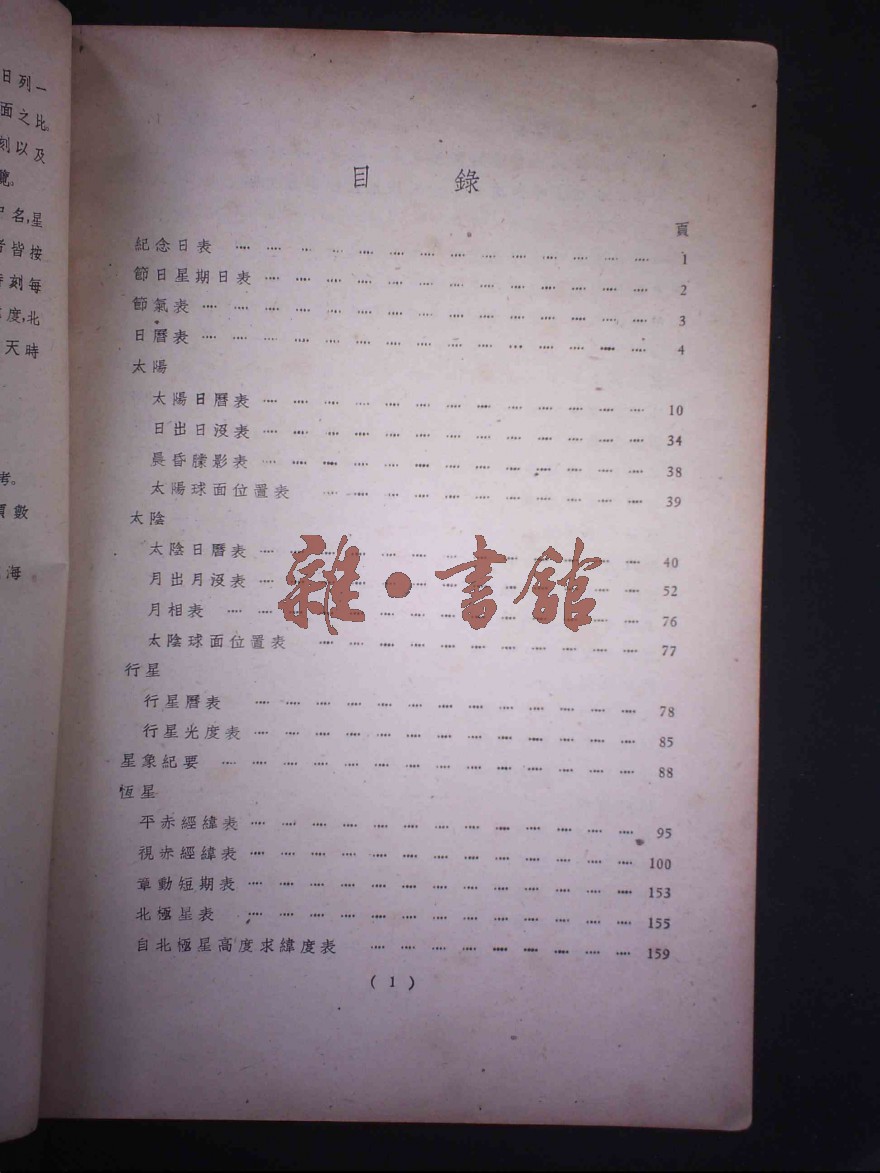 日列一
面之比。
刻以及
覽。
名,星
者皆按
時刻每
度,北
天時
考。
數
海
目 錄
頁
紀念日表 ………………………… 1
節日星期日表 ………………………… 2
節氣表 ………………………… 3
日曆表 ………………………… 4
太陽
太陽日曆表 ………………………… 10
日出日沒表 ………………………… 34
晨昏朦影表 ………………………… 38
太陽球面位置表 ………………………… 39
太陰
太陰日曆表 ………………………… 40
月出月沒表 ………………………… 52
月相表 ………………………… 76
太陰球面位置表 ………………………… 77
行星
行星曆表 ………………………… 78
行星光度表 ………………………… 85
星象紀要 ………………………… 88
恆星
平赤經緯表 ………………………… 95
視赤經緯表 ………………………… 100
章動短期表 ………………………… 153
北極星表 ………………………… 155
自北極星高度求緯度表 ………………………… 159
( 1 )
雜·書館